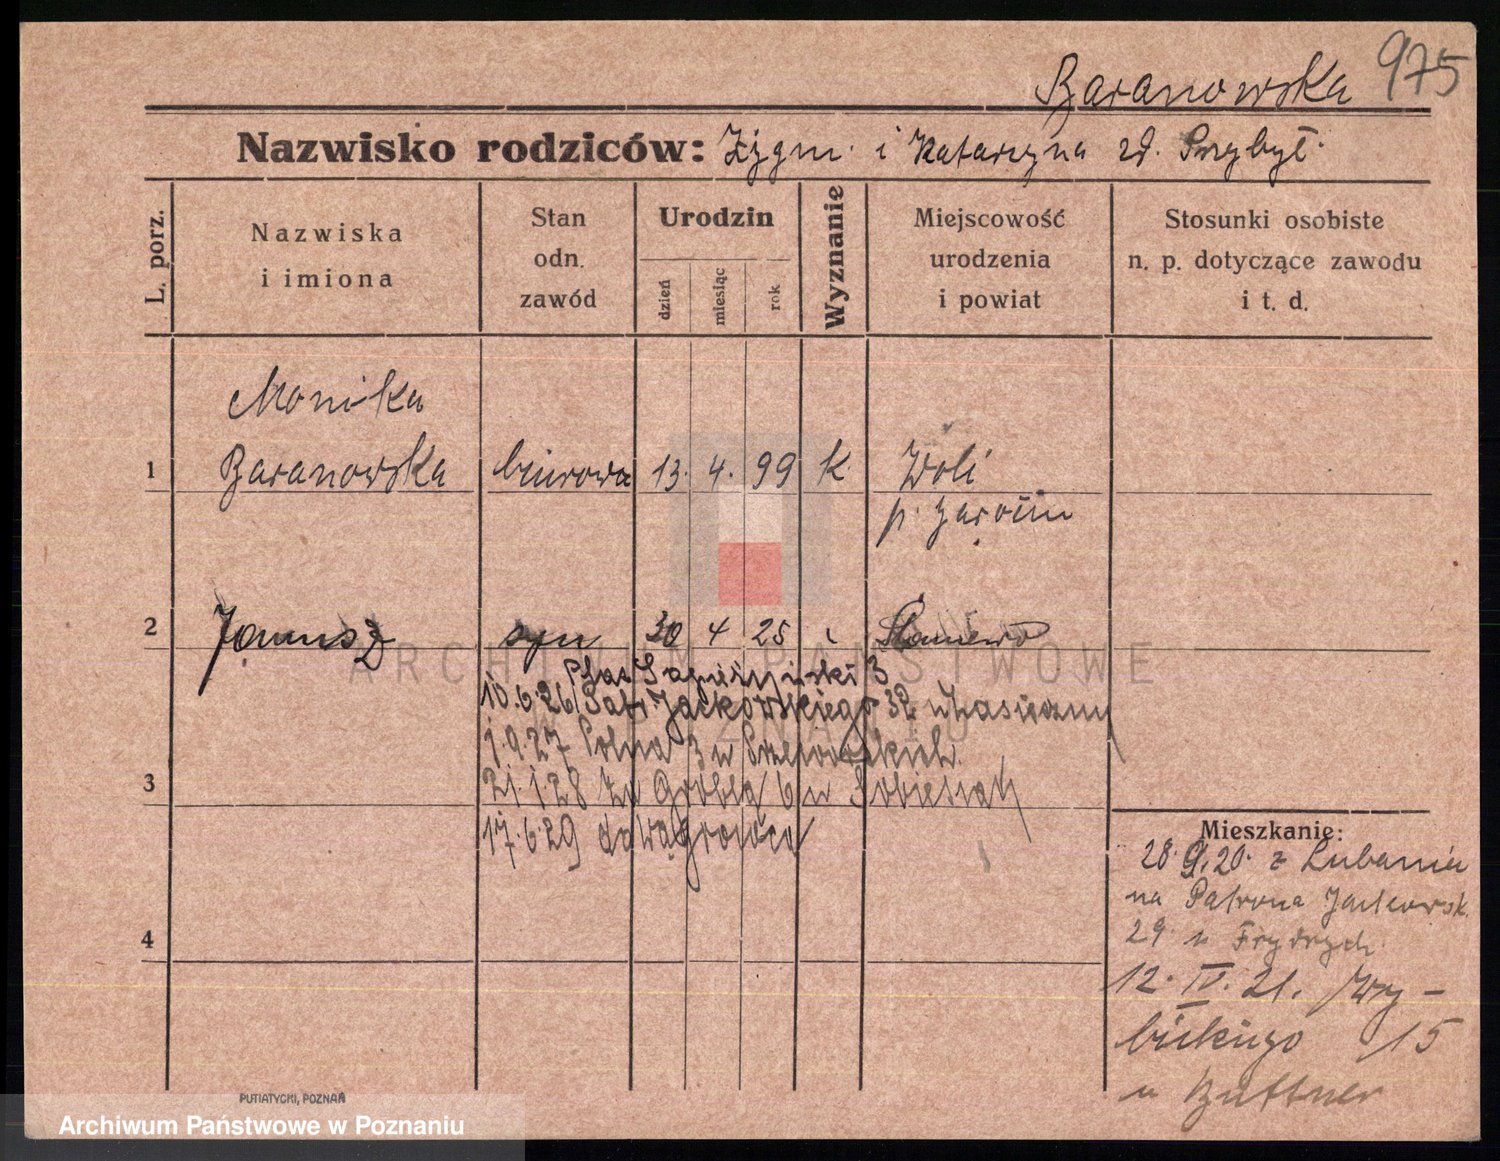 Baranowska 975
Nazwisko rodziców: Zygm. i Katarzyna zd. Przybył.
L. porz.
Nazwiska
i imiona
Stan
odn.
zawód
Urodzin
dzień
miesiąc
rok
Wyznanie
Miejscowość
urodzenia
i powiat
Stosunki osobiste
n. p. dotyczące zawodu
i t. d.
Monika
1 Baranowska biurowa 13. 4. 99 k Woli
p. Jarocin
2 Janusz syn 30 4 25
ARCHIWUM PAŃSTWOWE
W POZNANIU
Plac Sapieżyński 3
10.6.26 Patr. Jackowskiego 32
1.9.27 Polna 3 u
3
21.1.28 Grobla 6 u
17.6.29 do Wągrowca
4
Mieszkanie:
28. 9. 20. z Lubania
na Patrona Jackowsk.
29 u Frydrych
12. IV. 21. Wy-
bickiego 15
u Buttner
PUTIATYCKI, POZNAŃ
Archiwum Państwowe w Poznaniu